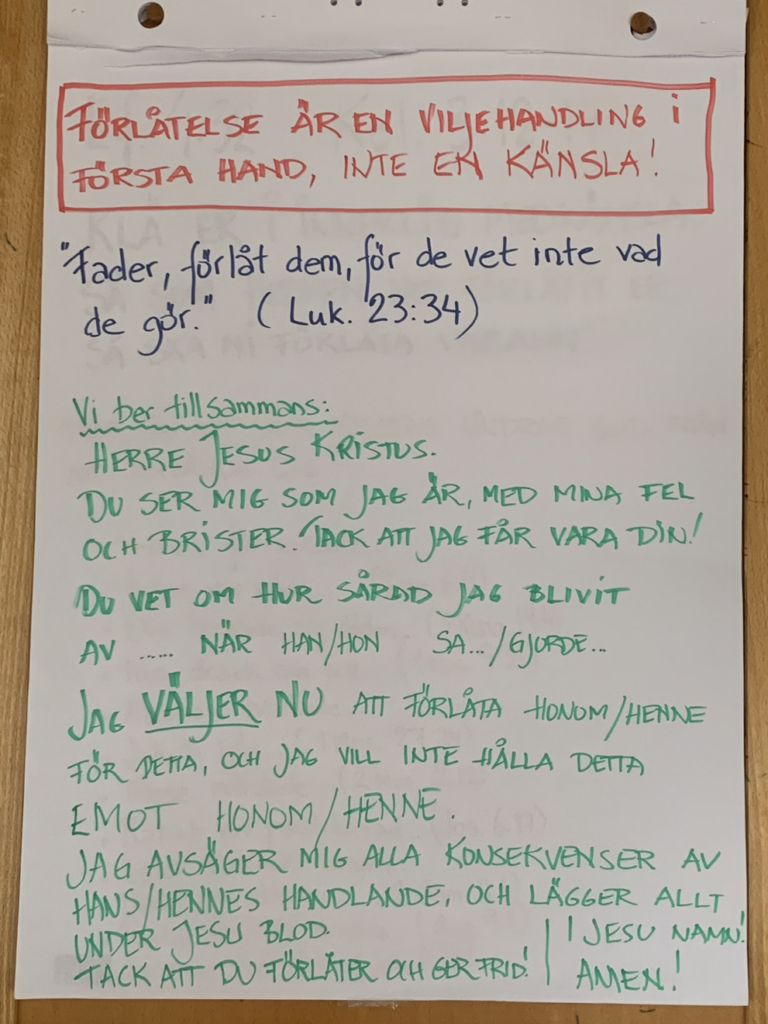 FÖRLÅTELSE ÄR EN VILJEHANDLING I
FÖRSTA HAND, INTE EN KÄNSLA!
"Fader, förlåt dem, för de vet inte vad
de gör." (Luk. 23:34)
Vi ber tillsammans:
HERRE JESUS KRISTUS.
DU SER MIG SOM JAG ÄR, MED MINA FEL
OCH BRISTER. TACK ATT JAG FÅR VARA DIN!
DU VET OM HUR SÅRAD JAG BLIVIT
AV ..... NÄR HAN/HON SA.../GJORDE...
JAG VÄLJER NU ATT FÖRLÅTA HONOM/HENNE
FÖR DETTA, OCH JAG VILL INTE HÅLLA DETTA
EMOT HONOM/HENNE.
JAG AVSÄGER MIG ALLA KONSEKVENSER AV
HANS/HENNES HANDLANDE, OCH LÄGGER ALLT
UNDER JESU BLOD.
TACK ATT DU FÖRLÅTER OCH GER FRID!
I JESU NAMN!
AMEN!